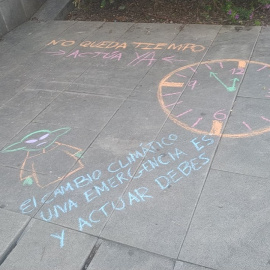 NO QUEDA TIEMPO
→ ACTÚA YA ←
12
EL CAMBIO CLIMÁTICO
UNA EMERGENCIA ES
Y ACTUAR DEBES